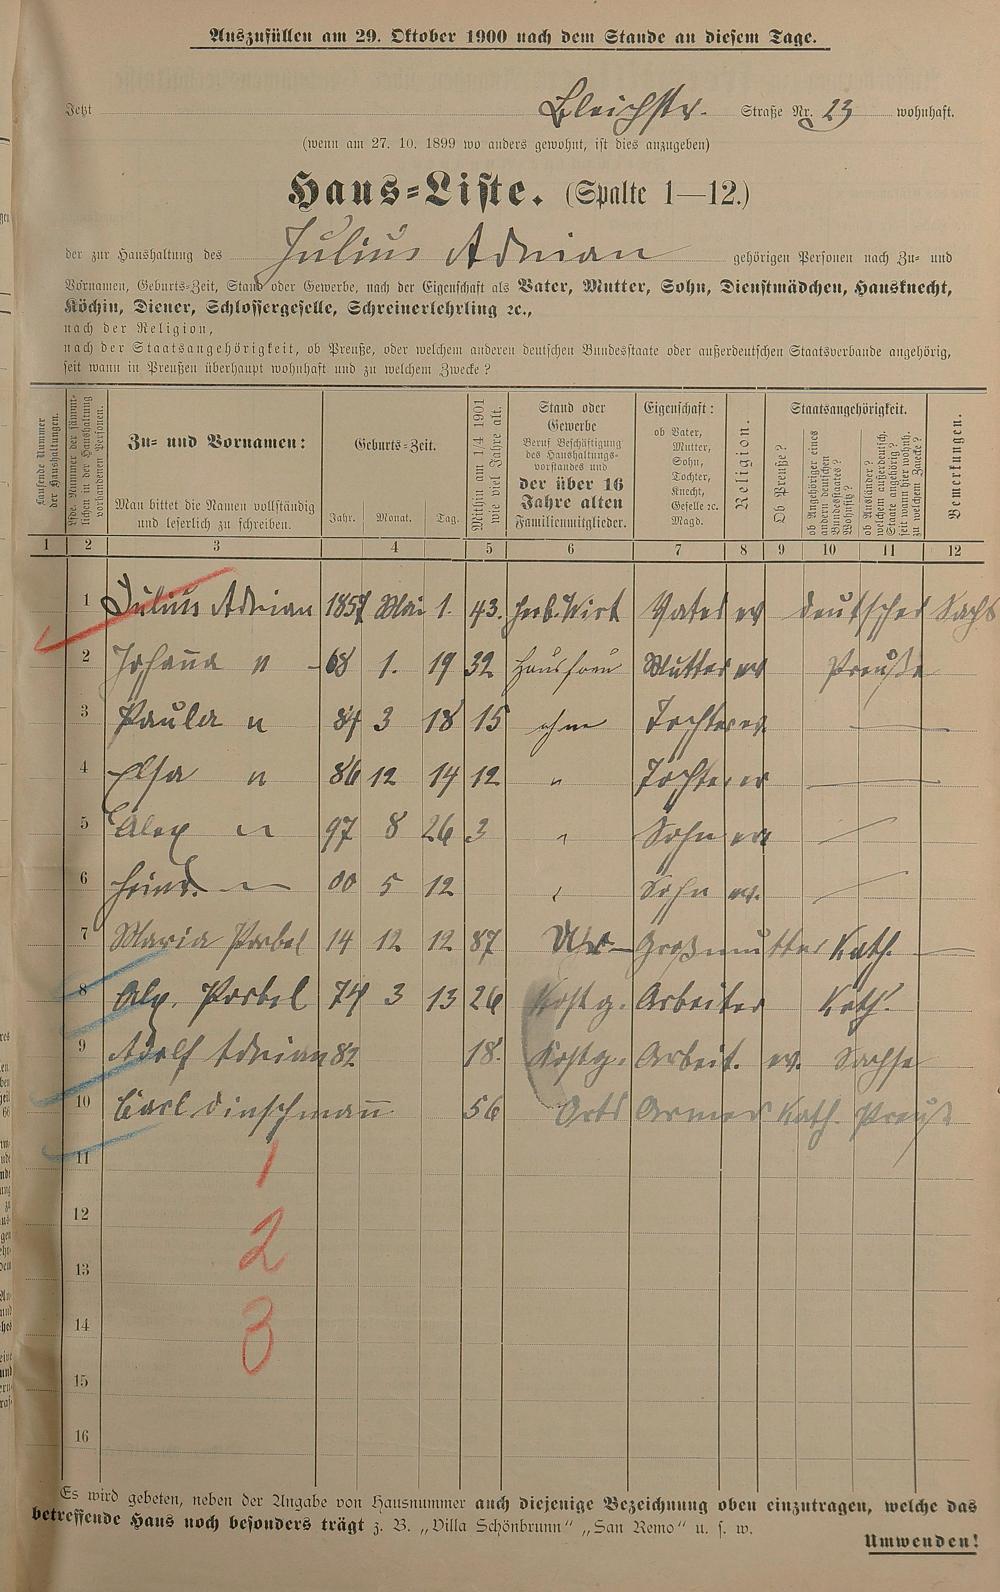 Auszufüllen am 29. Oktober 1900 nach dem Stande an diesem Tage.
Jetzt Bleichstr. Straße Nr. 23 wohnhaft.
(wenn am 27. 10. 1899 wo anders gewohnt, ist dies anzugeben)
Haus-Liste. (Spalte 1—12.)
der zur Haushaltung des Julius Adrian gehörigen Personen nach Zu- und
Vornamen, Geburts-Zeit, Stand oder Gewerbe, nach der Eigenschaft als Vater, Mutter, Sohn, Dienstmädchen, Hausknecht,
Köchin, Diener, Schlossergeselle, Schreinerlehrling ꝛc.,
nach der Religion,
nach der Staatsangehörigkeit, ob Preuße, oder welchem anderen deutschen Bundesstaate oder außerdeutschen Staatsverbande angehörig,
seit wann in Preußen überhaupt wohnhaft und zu welchem Zwecke?
Laufende Nummer der Haushaltungen.
Lfde. Nummer der sämmtlichen in der Haushaltung vorhandenen Personen.
Zu- und Vornamen:
Man bittet die Namen vollständig
und leserlich zu schreiben.
Geburts-Zeit.
Jahr. Monat. Tag.
Mithin am 1/4 1901 wie viel Jahre alt.
Stand oder
Gewerbe
Beruf Beschäftigung
des Haushaltungs-
vorstandes und
der über 16
Jahre alten
Familienmitglieder.
Eigenschaft:
ob Vater,
Mutter,
Sohn,
Tochter,
Knecht,
Geselle ꝛc.
Magd.
Religion.
Staatsangehörigkeit.
Ob Preuße?
ob Angehöriger eines andern deutschen Bundesstaates? Wohnsitz?
ob Ausländer? welchem außerdeutsch. Staate angehörig? seit wann hier wohnh. zu welchem Zwecke?
Bemerkungen.
1 2 3 4 5 6 7 8 9 10 11 12
1 Julius Adrian 1857 Mai 1. 43. Wirt Vater ev deutscher Sachs
2 Johanna " 68 1. 19 32 Hausfrau Mutter ev Preuße
3 Paula " 84 3 18 15 ohne Tochter ev. —
4 Elsa " 86 12 14 12 " Tochter ev —
5 Alex " 97 8 26 3 " Sohn ev —
6 Heinr. " 00 5 12 " Sohn ev. —
7 Maria 14 12 12 87 Großmutter Kath. —
8 Alx. 74 3 13 26 Kostg. Arbeiter Kath.
9 Adolf Adrian 82 18. Kostg. Arbeit. ev. Sachse
10 Carl Dinschmann 56 Orts Armer Kath. Preuß
11 1
12 2
13
14 3
15
16
Es wird gebeten, neben der Angabe von Hausnummer auch diejenige Bezeichnung oben einzutragen, welche das
betreffende Haus noch besonders trägt z. B. „Villa Schönbrunn" „San Remo" u. s. w.
Umwenden!